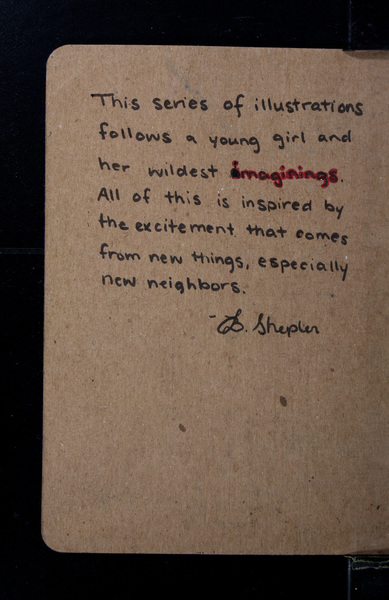 This series of illustrations
follows a young girl and
her wildest imaginings.
All of this is inspired by
the excitement that comes
from new things, especially
new neighbors.
- B. Shepler